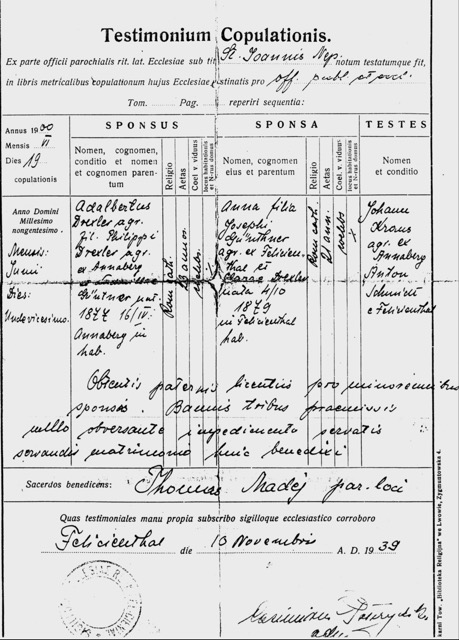 Testimonium Copulationis.
Ex parte officii parochialis rit. lat. Ecclesiae sub tit. St. Joannis Nep. notum testatumque fit,
in libris metricalibus copulationum hujus Ecclesiae destinatis pro off. publ. et eccl.
Tom. Pag. reperiri sequentia:
Annus 1900
Mensis VI
Dies 19
copulationis
SPONSUS
Nomen, cognomen, conditio et nomen et cognomen parentum
Religio
Aetas
Coel. v. viduus
locus habitationis et N-rus domus
SPONSA
Nomen, cognomen eius et parentum
Religio
Aetas
Coel v viduus
locus habitationis et N-rus domus
TESTES
Nomen et conditio
Anno Domini
Millesimo
nongentesimo
Mensis:
Junii
Dies:
Undevicesimo
Adalbertus
Drexler agr.
fil. Philippi
Drexler agr.
ex Annaberg
et
Güntner nat.
1877 16/IV.
Annaberg in
hab.
Rom. cath.
23 annor.
coelebs
Anna filia
Josephi
Günthner
agr. ex Felicien
thal et
Drexler
nata 4/10
1879
in Felicienthal
hab.
Rom. cath.
21 ann.
coelebs
x
Johann
Kraus
agr. ex
Annaberg
Anton
Schmidt
e Felicienthal
Obtentis paternis licentiis pro minorenibus
sponsis. Bannis tribus praemissis
nullo obversante impedimento servatis
servandis matrimonio huic benedixi
Sacerdos benedicens: Thomas Madej par. loci
Quas testimoniales manu propia subscribo sigilloque ecclesiastico corroboro
Felicienthal die 10 Novembris A. D. 1939
Kazimierz
adm.
karni Tow. „Biblioteka Religijna" we Lwowie, Zygmuntowska 4.